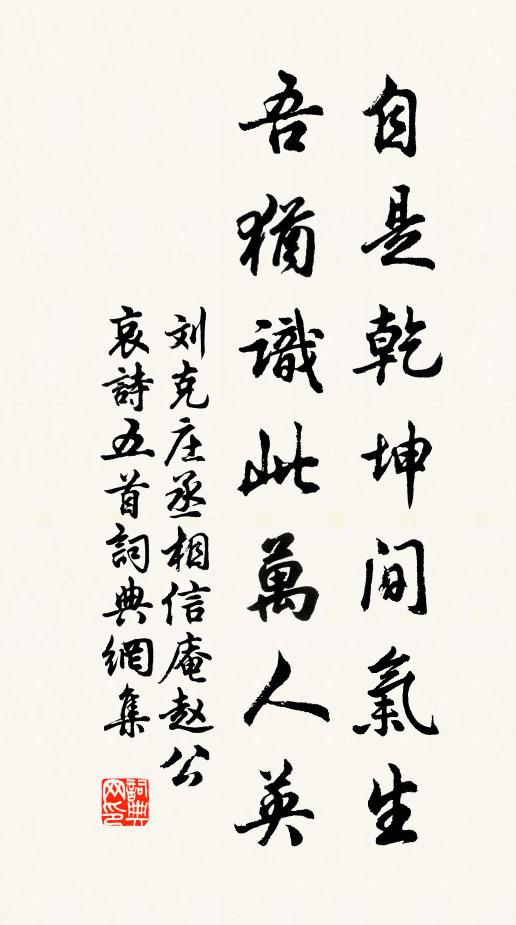 自是乾坤間氣生
吾猶識此萬人英
刘克庄丞相信庵赵公
哀詩五首詞典網集
詞典网印